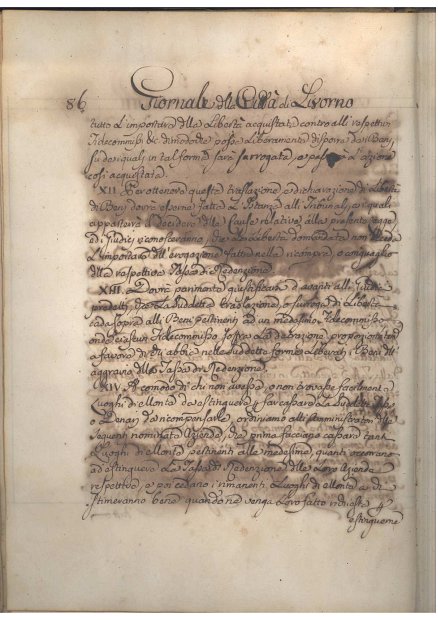 86
Giornale della Città di Livorno
tutto l'importare della Libertà acquistata contro alli respettivi
Fidecommissi &c. dimodochè possa liberamente disporre dei Beni,
su de quali in tal forma sarà surrogata, e l'azione
così acquistata.
XII. Per ottenere questa traslazione, e dichiarazione di Libertà
di Beni dovrà esserne fatta l'Istanza alli Tribunali, ai quali
appasterà il decidere delle Cause relative alla presente Legge,
ed i Giudici riconosceranno, che la Libertà domandata non
l'importare dell'erogazione fatta nella ricompra, o conguaglio
della respettiva Tassa di Redenzione.
XIII. Dovrà parimente giustificarsi d'avanti alli Giudici
predetti, che la suddetta traslazione, o surroga di Libertà
cada sopra alli Beni pertinenti ad un medesimo Fidecommisso
onde ciascun Fidecommisso soffra la detrazione proporzionata
a favore di chi abbia nelle suddette forme liberati i Beni dall'
aggravio della Tassa di Redenzione.
XIV. A comodo di chi non avesse, o non trovasse facilmente
Luoghi di Monte da estinguere
o Denari da ricomprarle, ordiniamo alli Amministratori delle
seguenti nominate Aziende, che prima facciano cassare tanti
Luoghi di Monte pertinenti alle medesime, quanti occorrano
ad estinguere la Tassa di Redenzione delle loro Aziende
respettive, e poi cedano i rimanenti Luoghi di Monte a chi
stimeranno bene quando ne venga loro fatto richiesta p
estinguerne